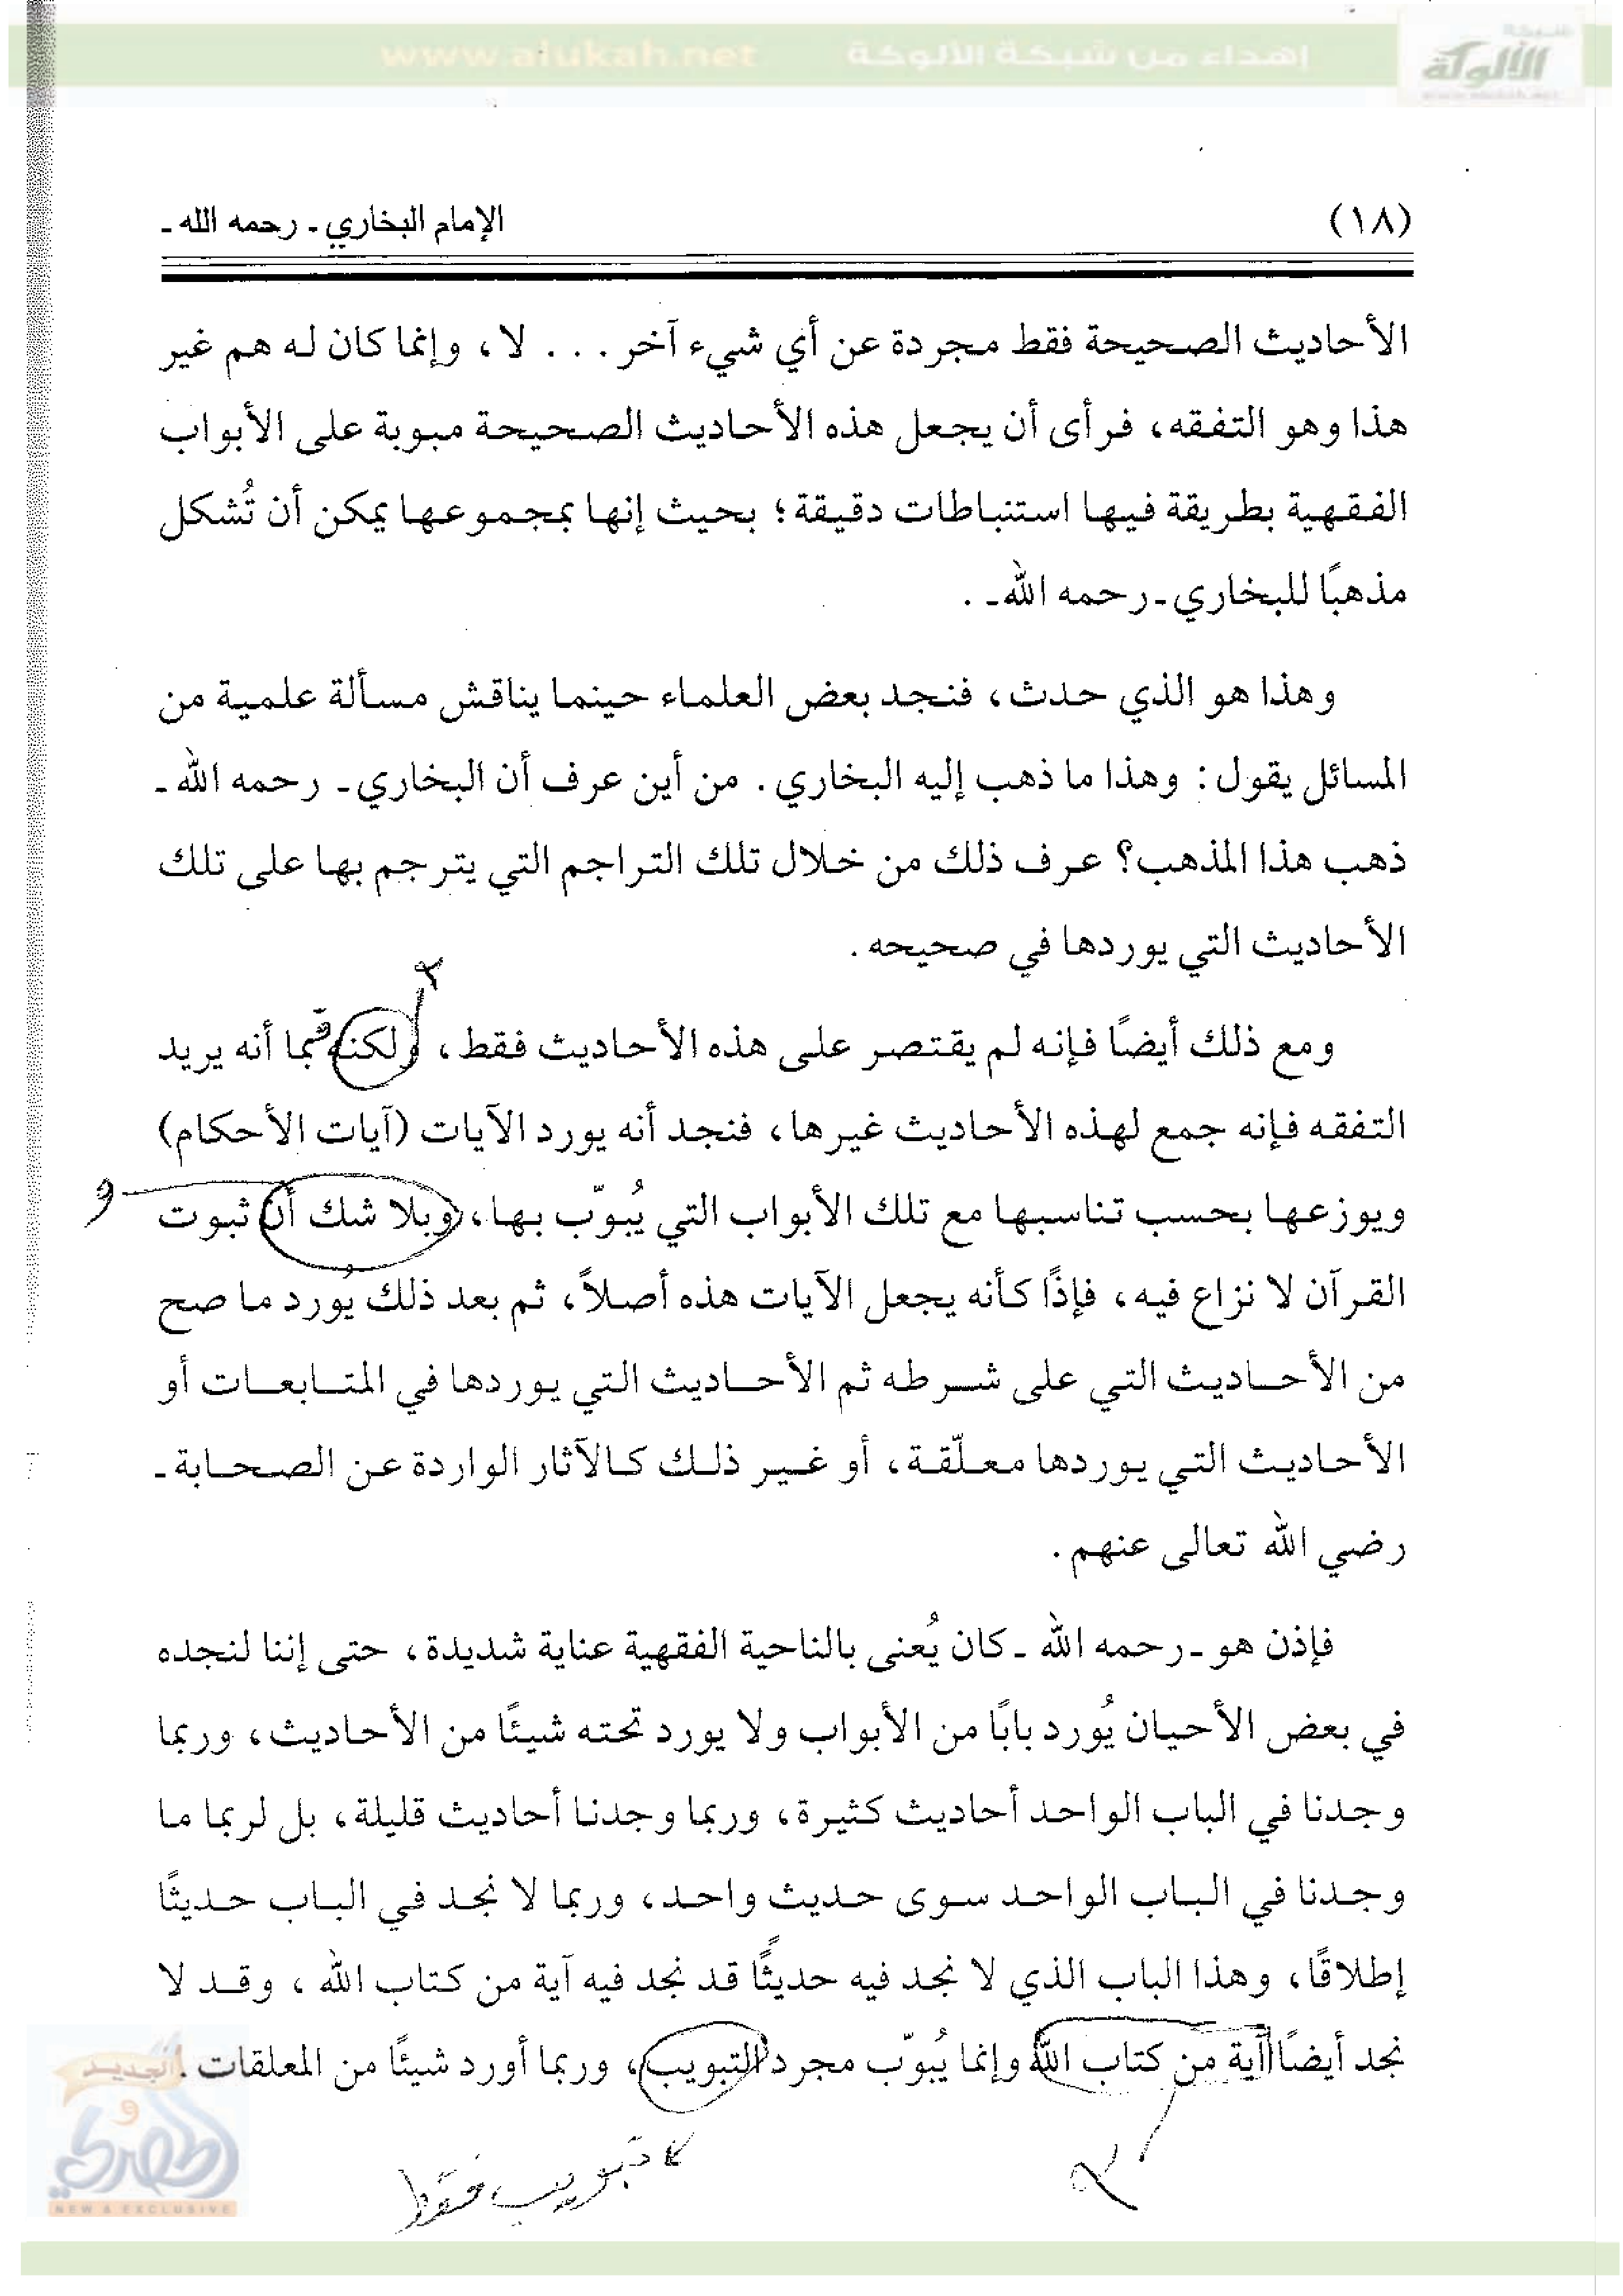 www.alukah.net إهداء من شبكة الألوكة
شبكة
الألوكة
(١٨) الإمام البخاري ـ رحمه الله ـ
الأحاديث الصحيحة فقط مجردة عن أي شيء آخر . . . لا، وإنما كان له هم غير
هذا وهو التفقه، فرأى أن يجعل هذه الأحاديث الصحيحة مبوبة على الأبواب
الفقهية بطريقة فيها استنباطات دقيقة؛ بحيث إنها بمجموعها يمكن أن تُشكل
مذهبًا للبخاري ـ رحمه الله ـ .
وهذا هو الذي حدث، فنجد بعض العلماء حينما يناقش مسألة علمية من
المسائل يقول: وهذا ما ذهب إليه البخاري. من أين عرف أن البخاري ـ رحمه الله ـ
ذهب هذا المذهب؟ عرف ذلك من خلال تلك التراجم التي يترجم بها على تلك
الأحاديث التي يوردها في صحيحه.
ومع ذلك أيضًا فإنه لم يقتصر على هذه الأحاديث فقط، ولكنه بما أنه يريد
التفقه فإنه جمع لهذه الأحاديث غيرها، فنجد أنه يورد الآيات (آيات الأحكام)
ويوزعها بحسب تناسبها مع تلك الأبواب التي يُبوّب بها، وبلا شك أن ثبوت
و
القرآن لا نزاع فيه، فإذًا كأنه يجعل الآيات هذه أصلاً، ثم بعد ذلك يورد ما صح
من الأحاديث التي على شرطه ثم الأحاديث التي يوردها في المتابعات أو
الأحاديث التي يوردها معلّقة، أو غير ذلك كالآثار الواردة عن الصحابة ـ
رضي الله تعالى عنهم.
فإذن هو ـ رحمه الله ـ كان يُعنى بالناحية الفقهية عناية شديدة، حتى إننا لنجده
في بعض الأحيان يُورد بابًا من الأبواب ولا يورد تحته شيئًا من الأحاديث، وربما
وجدنا في الباب الواحد أحاديث كثيرة، وربما وجدنا أحاديث قليلة، بل لربما ما
وجدنا في الباب الواحد سوى حديث واحد، وربما لا نجد في الباب حديثًا
إطلاقًا، وهذا الباب الذي لا نجد فيه حديثًا قد نجد فيه آية من كتاب الله، وقد لا
نجد أيضًا آية من كتاب الله وإنما يُبوّب مجرد التبويب، وربما أورد شيئًا من المعلقات.
تبويب فقط
الجديد
و
الحصري
NEW & EXCLUSIVE